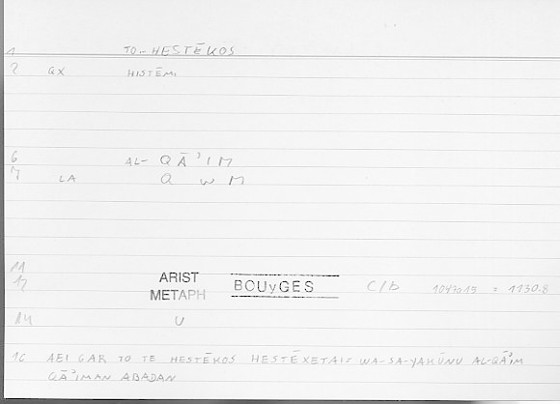 1 TO-HESTĒKOS
2 GX HISTĒMI
6 AL-QĀʾIM
7 LA Q W M
11
12 ARIST METAPH BOUyGES C/b 1047015 = 1130.8
14 U
16 AEI GAR TO TE HESTĒKOS HESTĒXETAI WA-SA-YAKŪNU AL-QĀʾIM
QĀʾIMAN ABADAN